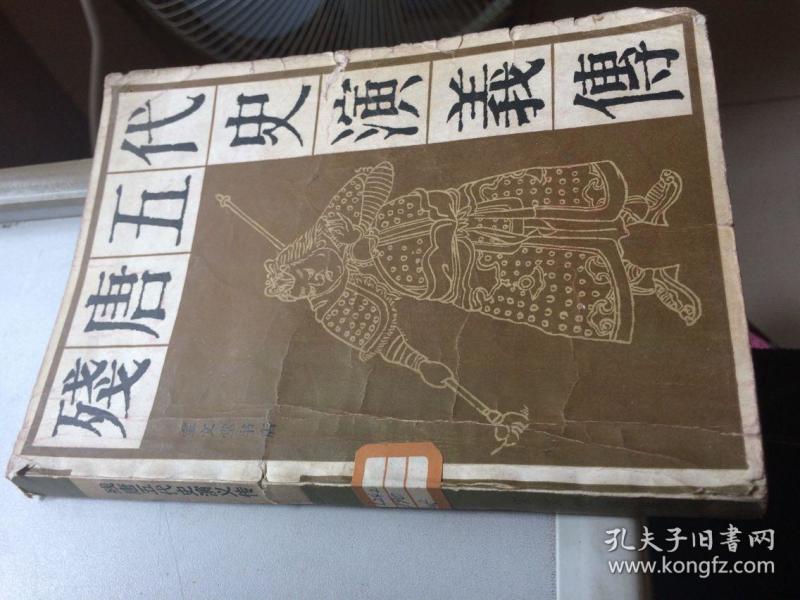 殘唐五代
史演義傳
宝文堂书店
残唐五代史演义传
孔夫子旧书网
www.kongfz.com